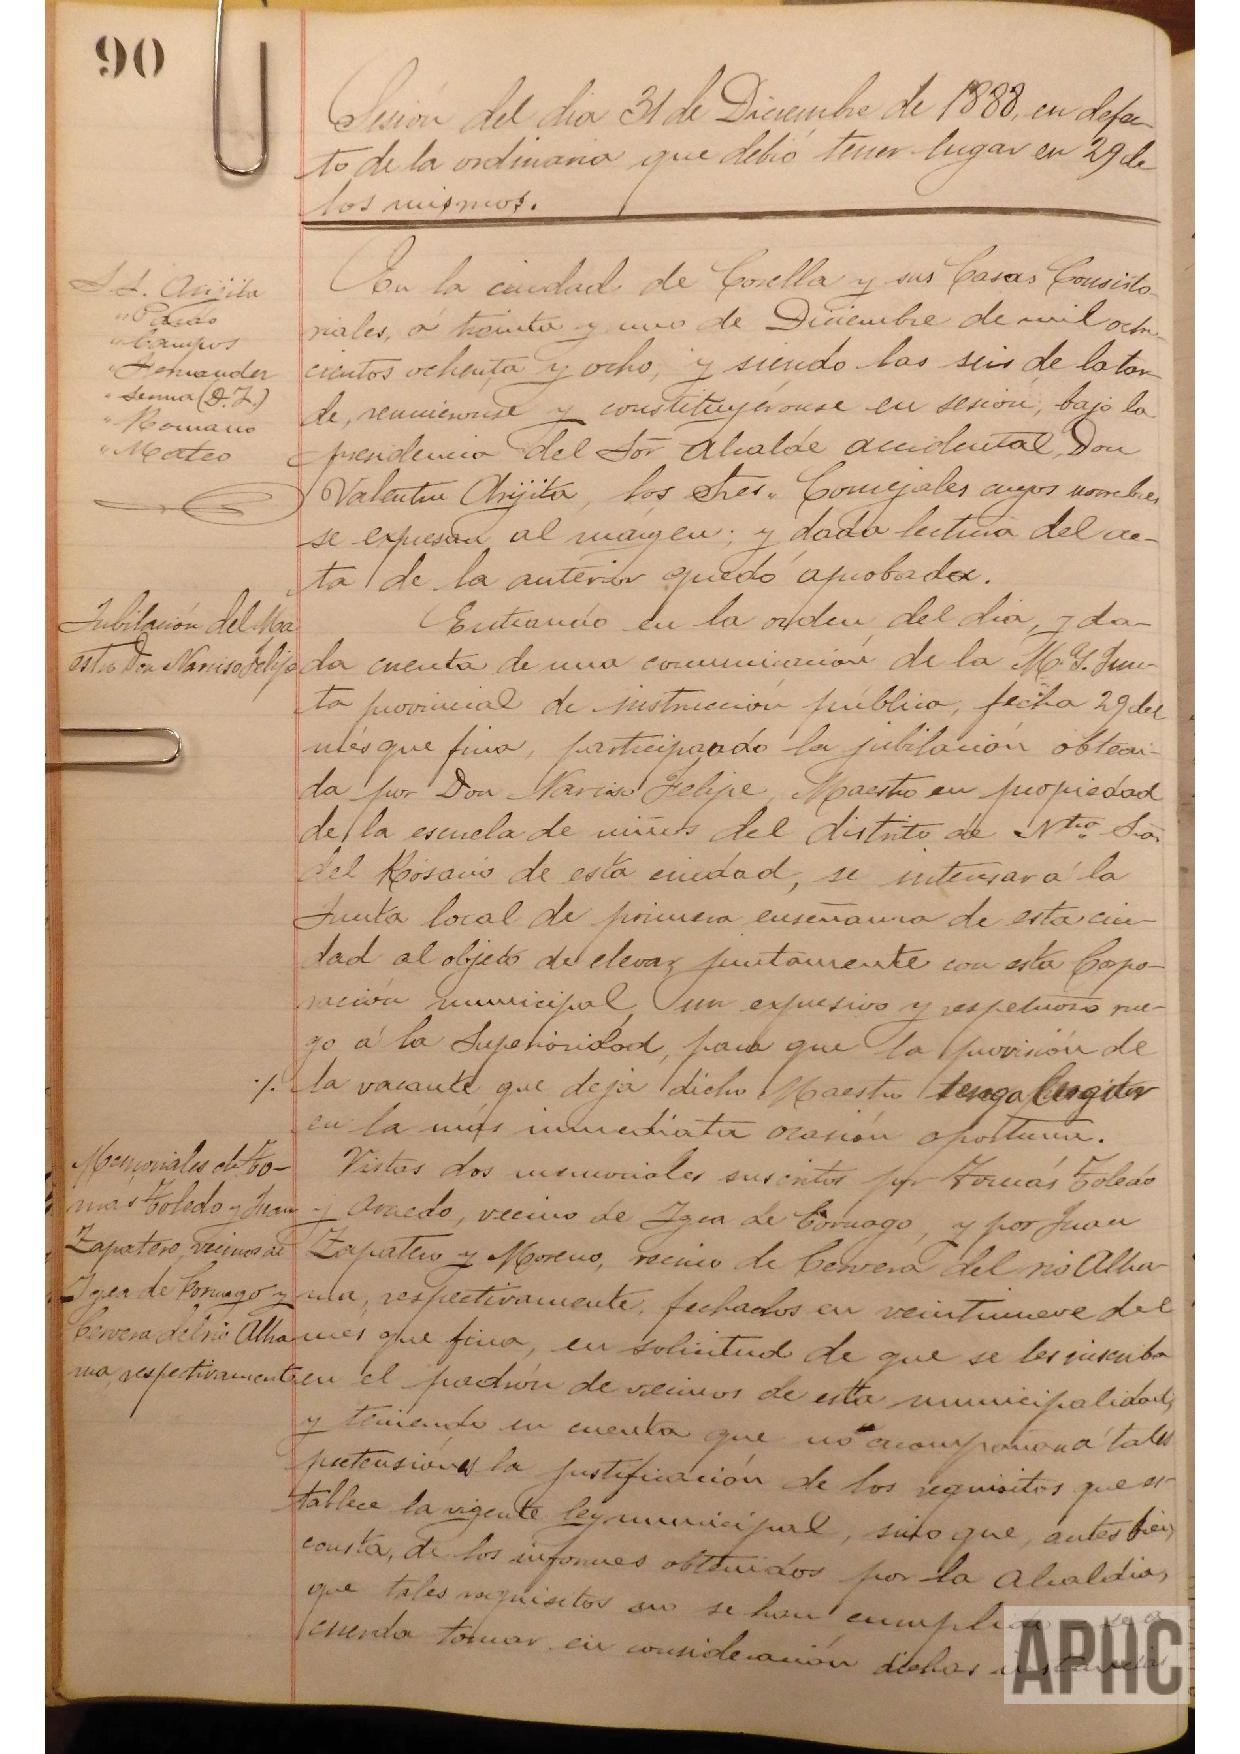 90
Sesión del dia 31 de Diciembre de 1888, en defec-
to de la ordinaria que debió tener lugar en 29 de
los mismos.
S. S. Arijita
" Campos
" Fernandez
" Senna (D. Z.)
" Romano
" Mateo
En la ciudad de Corella y sus Casas Consisto-
riales, á treinta y uno de Diciembre de mil ocho-
cientos ochenta y ocho, y siendo las seis de la tar-
de, reunieronse y constituyéronse en sesión, bajo la
presidencia del Sor Alcalde accidental, Don
Valentin Arijita, los Sres. Concejales cuyos nombres
se expresan al margen; y dada lectura del ac-
ta de la anterior quedó aprobada.
Jubilación del Ma
estro Don Narciso Felipe
Entrando en la orden del dia, y da-
da cuenta de una comunicación de la M. Y. Jun-
ta provincial de instrucción pública, fecha 29 del
mes que fina, participando la jubilación obteni-
da por Don Narciso Felipe, Maestro en propiedad
de la escuela de niños del distrito de Ntra. Sra.
del Rosario de esta ciudad, se interesará la
Junta local de primera enseñanza de esta ciu-
dad al objeto de elevar juntamente con esta Corpo-
ración municipal, un expresivo y respetuoso rue-
go á la Superioridad, para que la provisión de
la vacante que deja dicho Maestro tenga lugar
en la más inmediata ocasión oportuna.
Memoriales de To-
mas Toledo y Juan
Zapatero, vecinos de
Igea de Cornago y
Cervera del rio Alha
ma, respectivamente
Vistos dos memoriales suscritos por Tomás Toledo
y Arnedo, vecino de Igea de Cornago, y por Juan
Zapatero y Moreno, vecino de Cervera del rio Alha-
ma, respectivamente, fechados en veintinueve del
mes que fina, en solicitud de que se les inscriba
en el padrón de vecinos de esta municipalidad,
y teniendo en cuenta que no acompaña á tales
pretensiones la justificación de los requisitos que es-
tablece la vigente ley municipal, sino que, antes bien,
consta, de los informes obtenidos por la Alcaldia,
que tales requisitos no se han cumplido se a
cuerda tomar en consideración dichas instancias
APHC